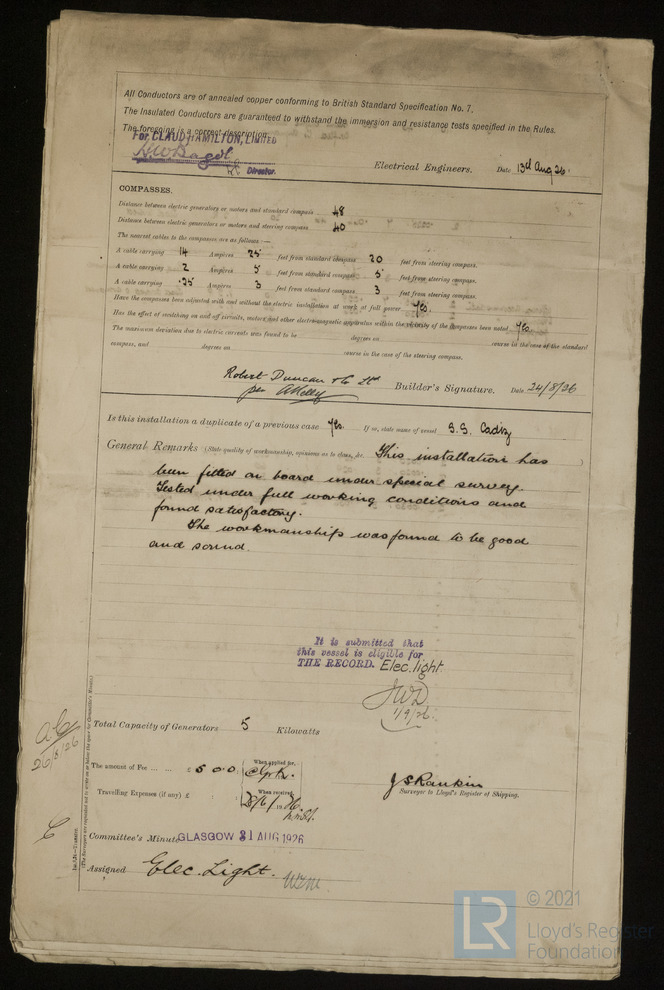 All Conductors are of annealed copper conforming to British Standard Specification No. 7.
The Insulated Conductors are guaranteed to withstand the immersion and resistance tests specified in the Rules.
The foregoing is a correct description.
For CLAUD HAMILTON, LIMITED
Director.
Electrical Engineers. Date 13d Aug 26.
COMPASSES.
Distance between electric generators or motors and standard compass 48
Distance between electric generators or motors and steering compass 40
The nearest cables to the compasses are as follows:—
A cable carrying 14 Ampères 25 feet from standard compass 20 feet from steering compass.
A cable carrying 2 Ampères 5 feet from standard compass 5 feet from steering compass.
A cable carrying .25 Ampères 3 feet from standard compass 3 feet from steering compass.
Have the compasses been adjusted with and without the electric installation at work at full power Yes.
Has the effect of switching on and off circuits, motors and other electromagnetic apparatus within the vicinity of the compasses been noted Yes.
The maximum deviation due to electric currents was found to be degrees on course in the case of the standard
compass, and degrees on course in the case of the steering compass.
Robert Duncan & Co Ltd
per Builder's Signature. Date 24/8/26
Is this installation a duplicate of a previous case Yes. If so, state name of vessel S.S. Cadiz
General Remarks (State quality of workmanship, opinions as to class, &c. This installation has
been fitted on board under special survey.
Tested under full working conditions and
found satisfactory.
The workmanship was found to be good
and sound.
It is submitted that
this vessel is eligible for
THE RECORD. Elec. light
JWD
1/9/26.
26/8/26
Total Capacity of Generators 5 Kilowatts
The amount of Fee ... ... £ 5 0 0. When applied for,
Travelling Expenses (if any) £ When received,
J S Rankin
Surveyor to Lloyd's Register of Shipping.
Committee's Minute GLASGOW 31 AUG 1926
Assigned Elec. Light.
© 2021
LR Lloyd's Register
Foundation